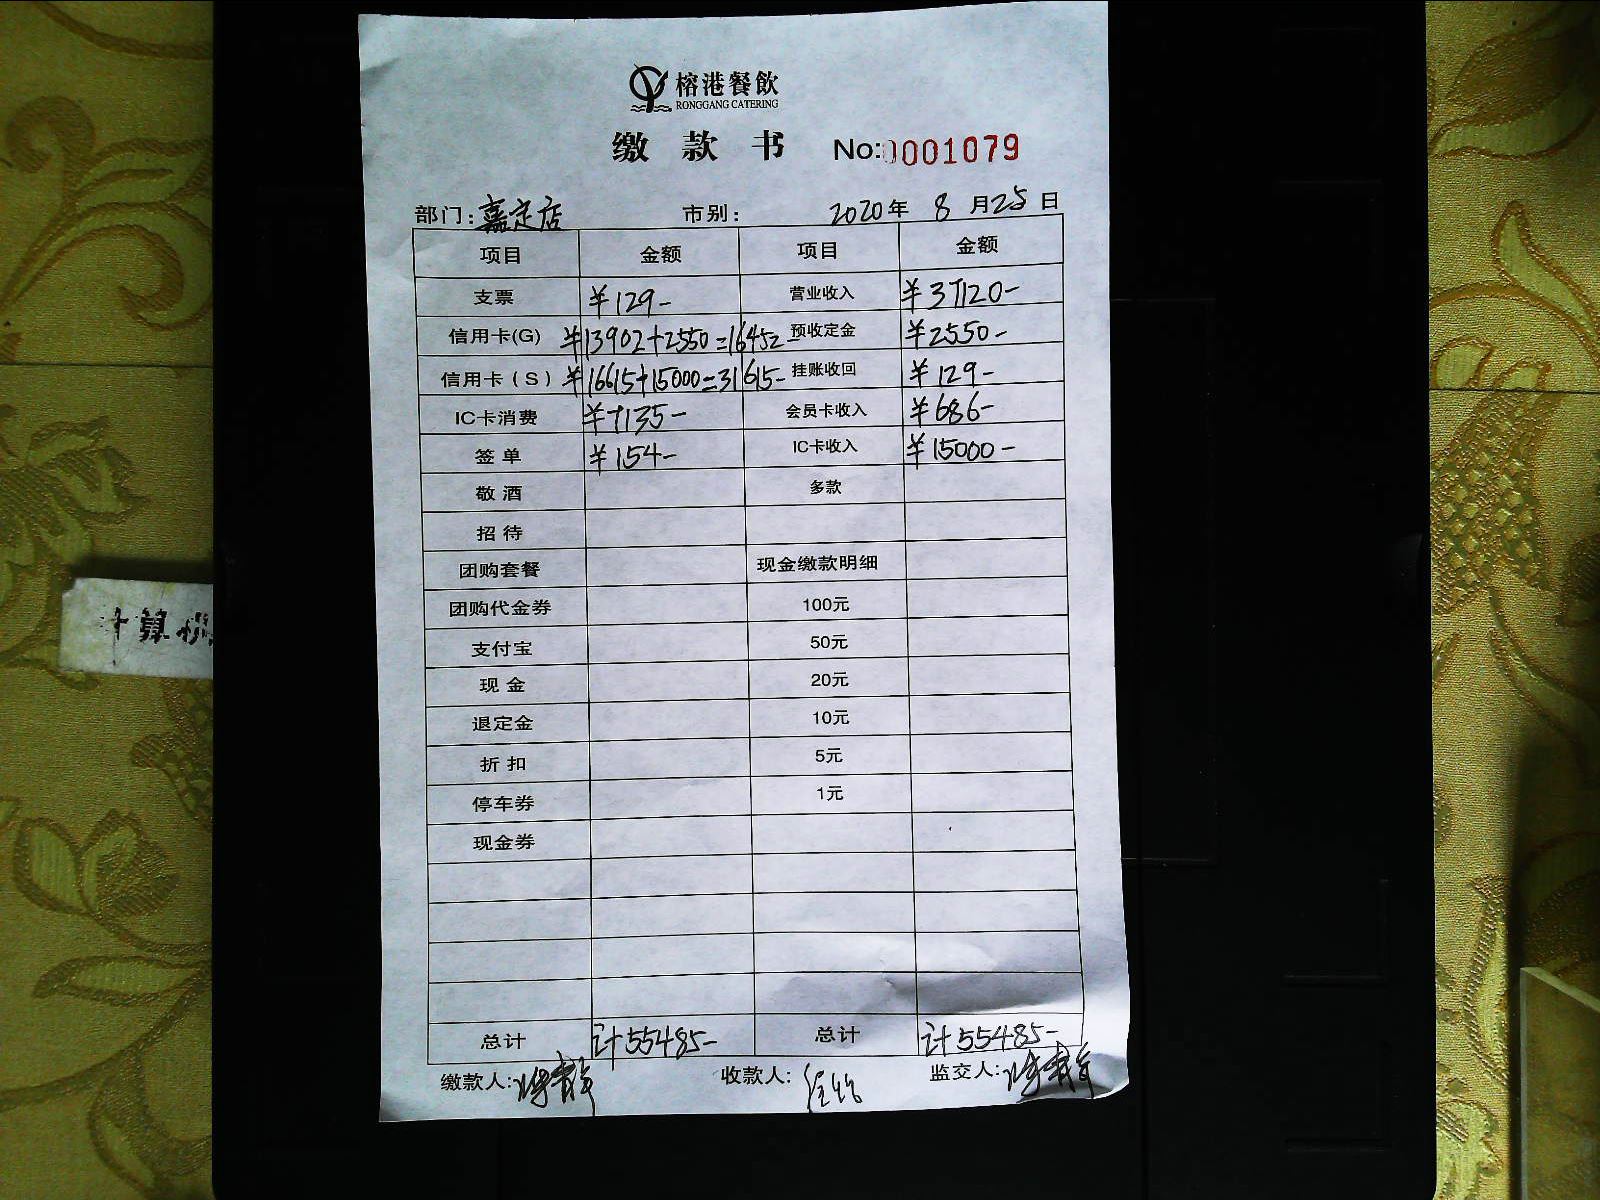 榕港餐飲
RONGGANG CATERING
缴款书 No:0001079
部门:嘉定店 市别: 2020年 8月25日
项目 金额 项目 金额
支票 ¥129- 营业收入 ¥37120-
信用卡(G) ¥13902+2550=16452- 预收定金 ¥2550-
信用卡(S) ¥16615+15000=31615- 挂账收回 ¥129-
IC卡消费 ¥7135- 会员卡收入 ¥686-
签单 ¥154- IC卡收入 ¥15000-
敬酒 多款
招待
团购套餐 现金缴款明细
团购代金券 100元
支付宝 50元
现金 20元
退定金 10元
折扣 5元
停车券 1元
现金券
总计 计55485- 总计 计55485-
缴款人: 收款人: 监交人:
算